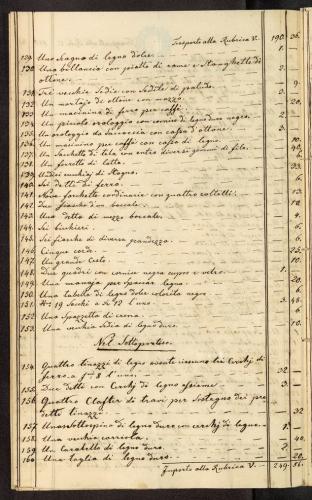 Trasporto alla Rubrica V. 190. 36.
129. Uno scagno di legno dolce 1. -
130. Una bilancia con piatto di rame e Stanghetta di
ottone.
131. Tre vecchie Sedie con Sedile di
132. Un mortajo di ottone con mazzo
133. Un macinino di ferro per caffè
134. Un piccolo orologio con cornice di legno duro negro.
135. Un orologio da Saccoccia con cassa d'ottone.
136. Un macinino per caffè con cassa di legno
137. Un Sachetto di tela con entro diversi gemmi di filo.
138. Un ferretto di latta.
139. Undici cuchiaj di Stagno.
140. Sei dette di ferro.
141. Nove forchette ordinarie con quattro coltelli
142. Due fiasche d'un boccale.
143. Una detta di mezzo boccale.
144. Sei bichieri.
145. Sei fiasche di diversa grandezza.
146. Cinque corde.
147. Un grande Cesto.
148. Due quadri con cornice negra e vetro.
149. Una manaja per spaccar legna.
150. Una tabella di legno dolce colorita negro
151. No 19 Sacchi a X 12 l'uno.
152. Una Spazzetta di crena.
153. Una vecchia Sedia di legno duro.
Nel Sottoportico.
154. Quattro tinazzi di legno tre Cerchj di
ferro a f 8 l'uno. 32 -
155. Due detti con Cerchj di legno
156. Quattro Clafter di travi per Sostegno dei pre
detti tinazzi. 32
157. Un di legno duro con cerchj di legno. 1.
158. Una vecchia carriola.
159. Un Caratello di legno duro.
160. Una taglia di legno duro.
Trasporto alla Rubrica V. 249. 56.